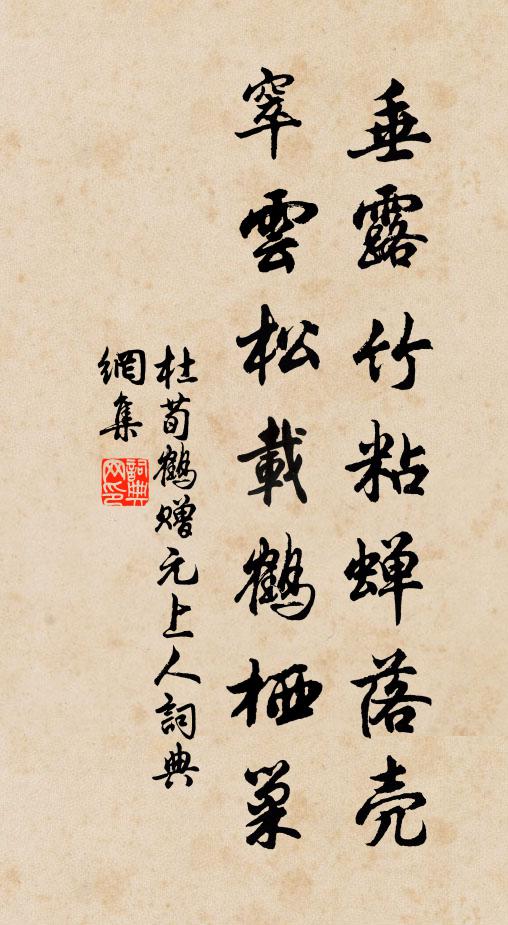 垂露竹粘蝉落壳
窣雲松載鶴栖巢
杜荀鶴赠元上人詞典
網集
詞典网印